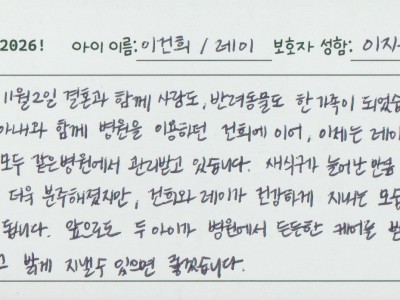 2026! 아이 이름: 이건희 / 레이 보호자 성함: 이지
11월 2일 결혼과 함께 사람도, 반려동물도 한 가족이 되었습
아내와 함께 병원을 이용하던 건희에 이어, 이제는 레이
모두 같은 병원에서 관리받고 있습니다. 새식구가 늘어난 만큼
더욱 분주해졌지만, 건희와 레이가 건강하게 지내는 모습
됩니다. 앞으로도 두 아이가 병원에서 든든한 케어를 받
밝게 지낼 수 있으면 좋겠습니다.